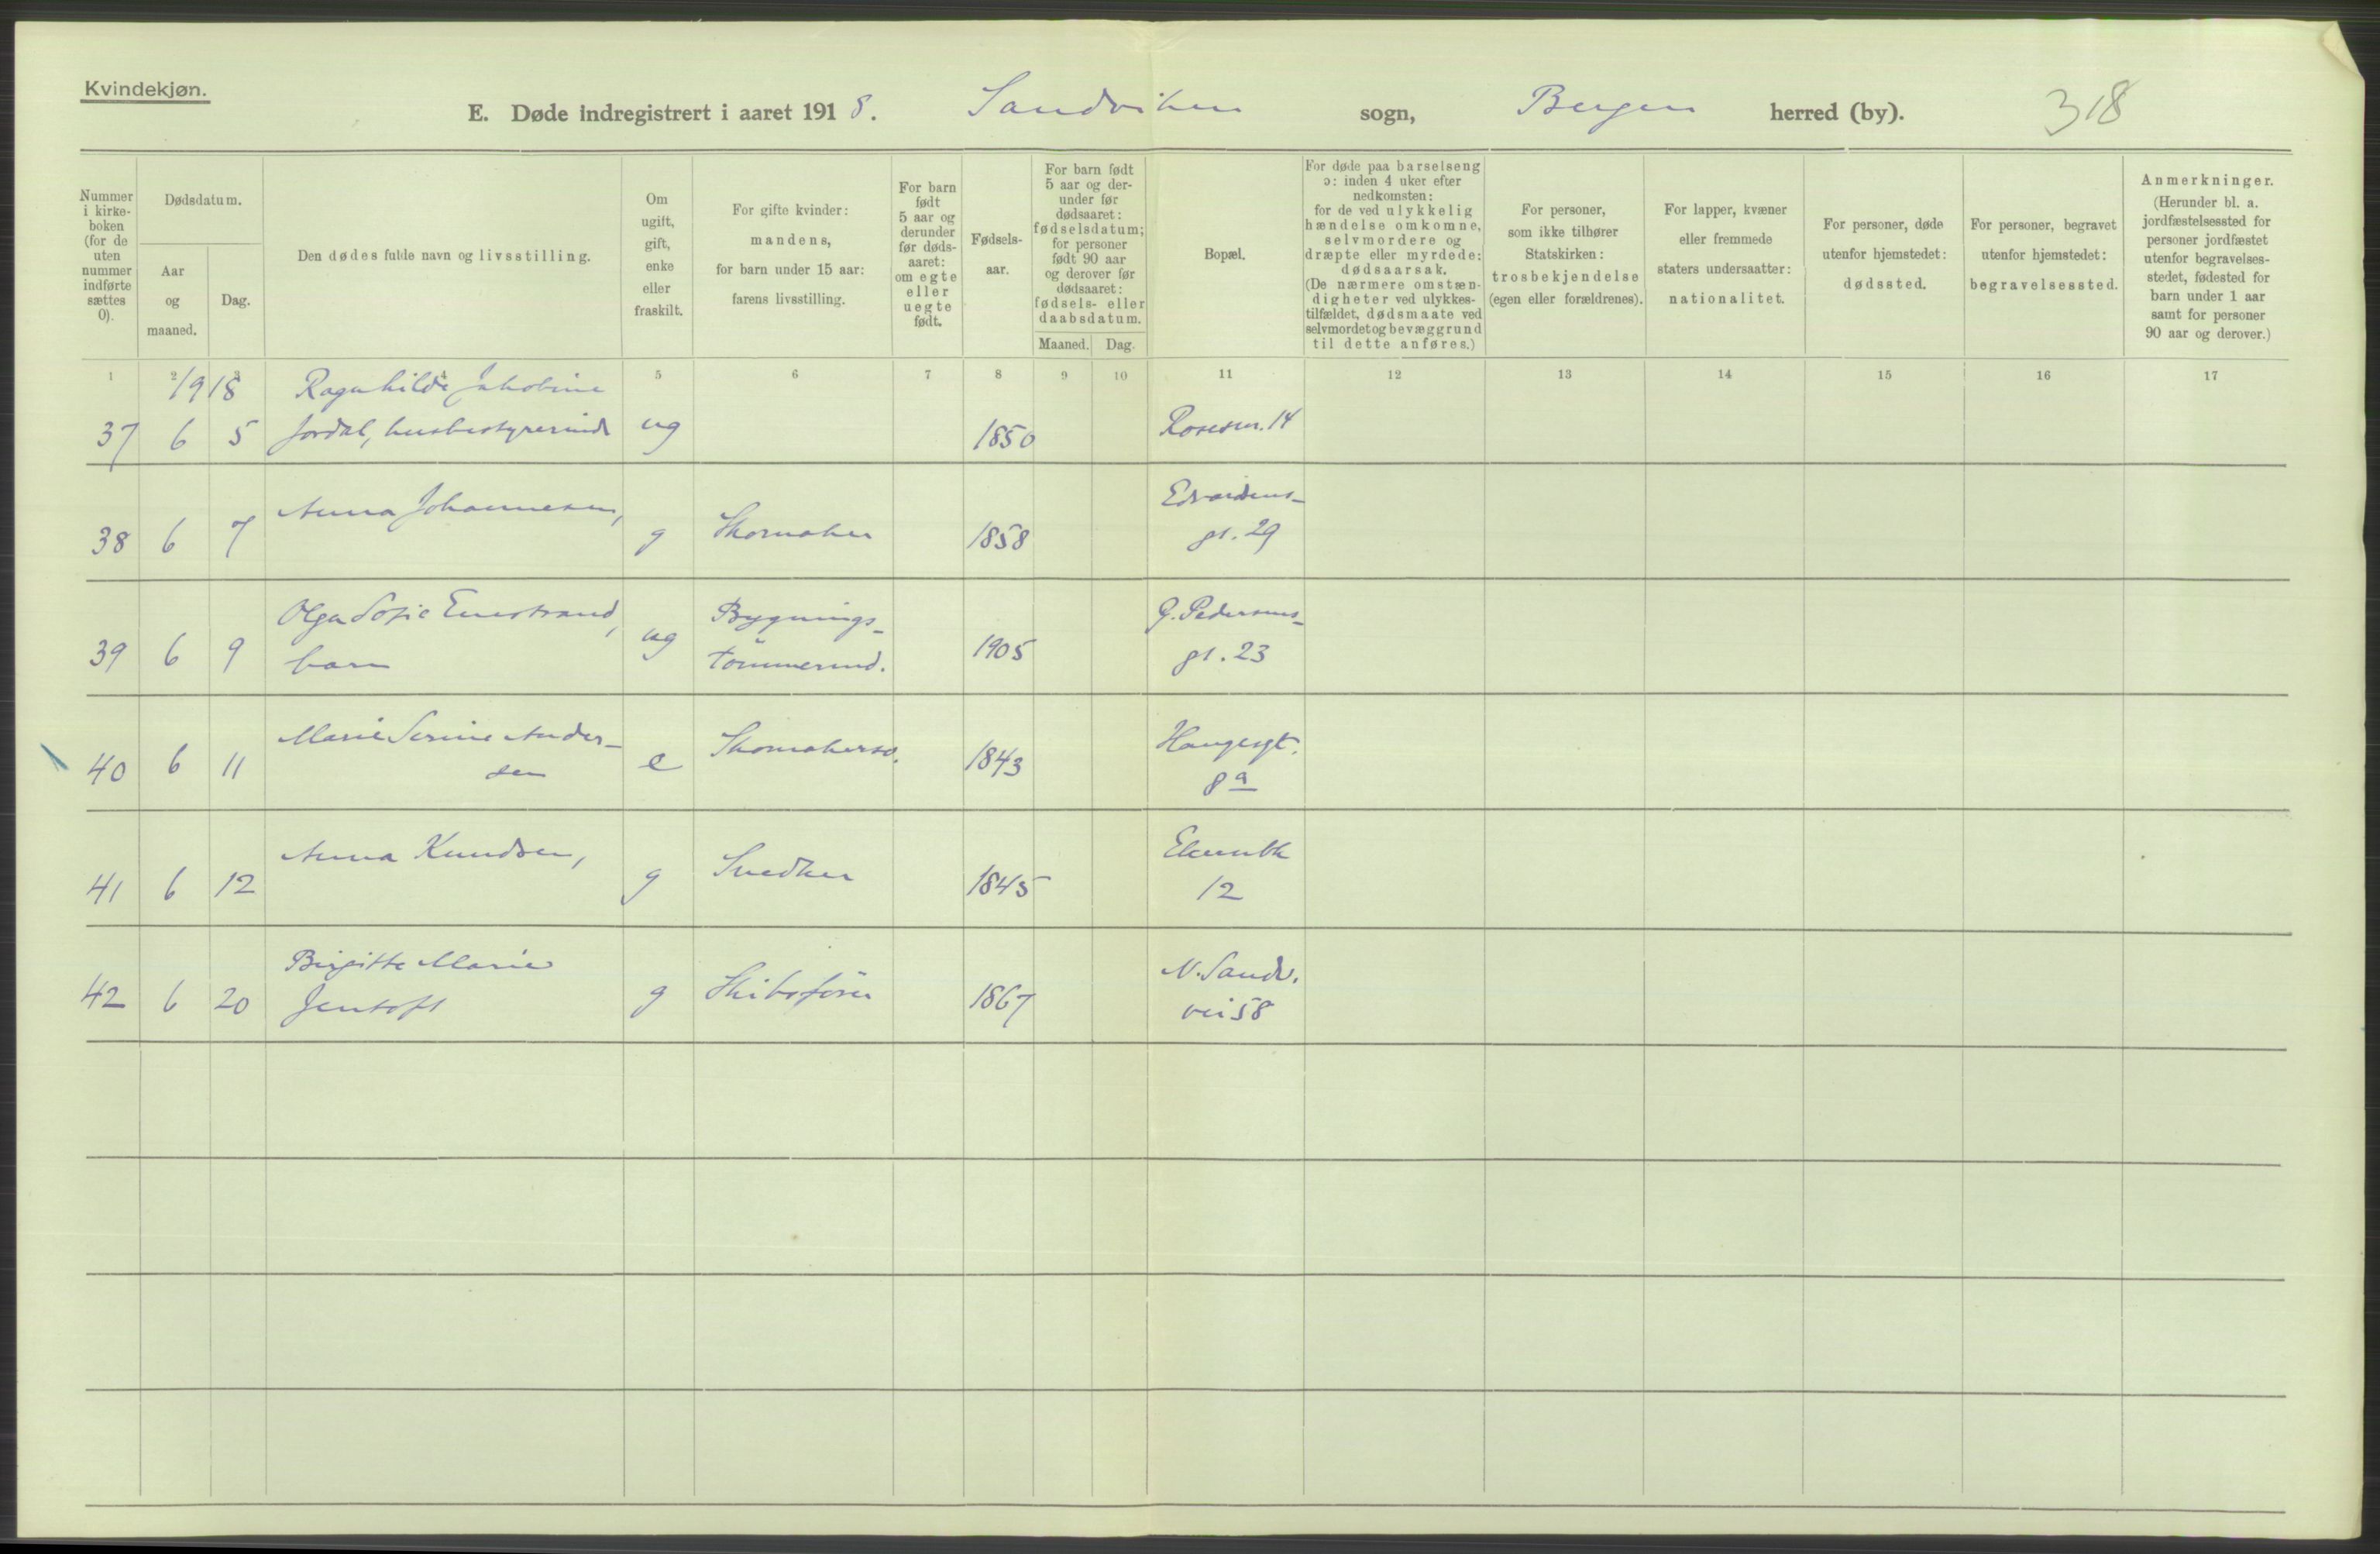 Kvindekjøn.
E. Døde indregistrert i aaret 1918. Sandviken sogn, Bergen herred (by). 318
Nummer i kirke- boken (for de uten nummer indførte sættes 0).
Dødsdatum.
Aar og maaned.
Dag.
Den dødes fulde navn og livsstilling.
Om ugift, gift, enke eller fraskilt.
For gifte kvinder: mandens, for barn under 15 aar: farens livsstilling.
For barn født 5 aar og derunder før døds- aaret: om egte eller uegte født.
Fødsels- aar.
For barn født 5 aar og der- under før dødsaaret: fødselsdatum; for personer født 90 aar og derover før dødsaaret: fødsels- eller daabsdatum.
Maaned. Dag.
Bopæl.
For døde paa barselseng ɔ: inden 4 uker efter nedkomsten: for de ved ulykkelig hændelse omkomne, selvmordere og dræpte eller myrdede: dødsaarsak. (De nærmere omstæn- digheter ved ulykkes- tilfældet, dødsmaate ved selvmordet og bevæggrund til dette anføres.)
For personer, som ikke tilhører Statskirken: trosbekjendelse (egen eller forældrenes).
For lapper, kvæner eller fremmede staters undersaatter: nationalitet.
For personer, døde utenfor hjemstedet: dødssted.
For personer, begravet utenfor hjemstedet: begravelsessted.
Anmerkninger. (Herunder bl. a. jordfæstelsessted for personer jordfæstet utenfor begravelses- stedet, fødested for barn under 1 aar samt for personer 90 aar og derover.)
1 2 3 4 5 6 7 8 9 10 11 12 13 14 15 16 17
1918 Ragnhilde Jakobine
37 6 5 Jordal, husbestyrerinde ug 1850 Rosesm. 14
Anna Johannesen, Edvardsens-
38 6 7 g Skomaker 1858 gt. 29
Olga Sofie Enestrand, Bygnings- G. Pedersens-
39 6 9 barn ug tømmermd. 1905 gt. 23
Marie Serine Ander- Skomakersv. Haugesgt.
40 6 11 sen e 1843 8a
Anna Knudsen, Snedker
41 6 12 g 1845 12
Birgitte Marie N. Sandv.
42 6 20 Jentoft g Skibsfører 1867 vei 58